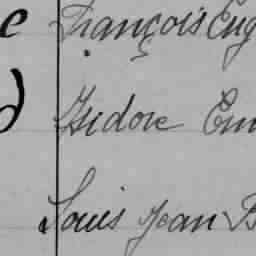 François Eug
Isidore Em
Louis Jean B